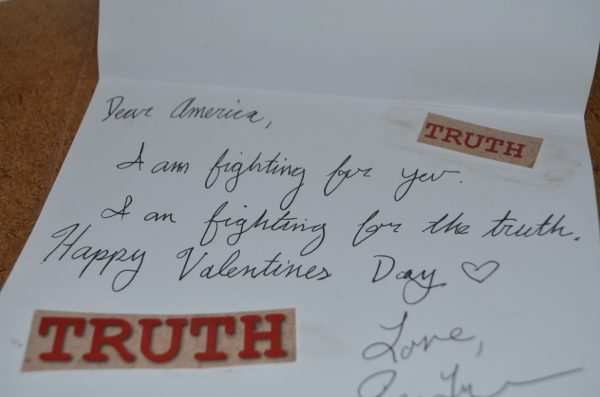 Dear America,
TRUTH
I am fighting for you.
I am fighting for the truth.
Happy Valentines Day ♡
TRUTH
Love,